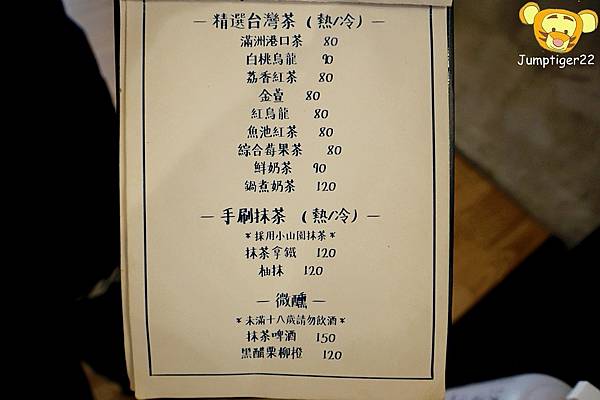 Jumptiger22
— 精選台灣茶 (熱/冷) —
滿洲港口茶 80
白桃烏龍 90
荔香紅茶 80
金萱 80
紅烏龍 80
魚池紅茶 80
綜合莓果茶 80
鮮奶茶 90
鍋煮奶茶 120
— 手刷抹茶 (熱/冷) —
*採用小山園抹茶*
抹茶拿鐵 120
柚抹 120
— 微醺 —
*未滿十八歲請勿飲酒*
抹茶啤酒 150
黑醋栗柳橙 120